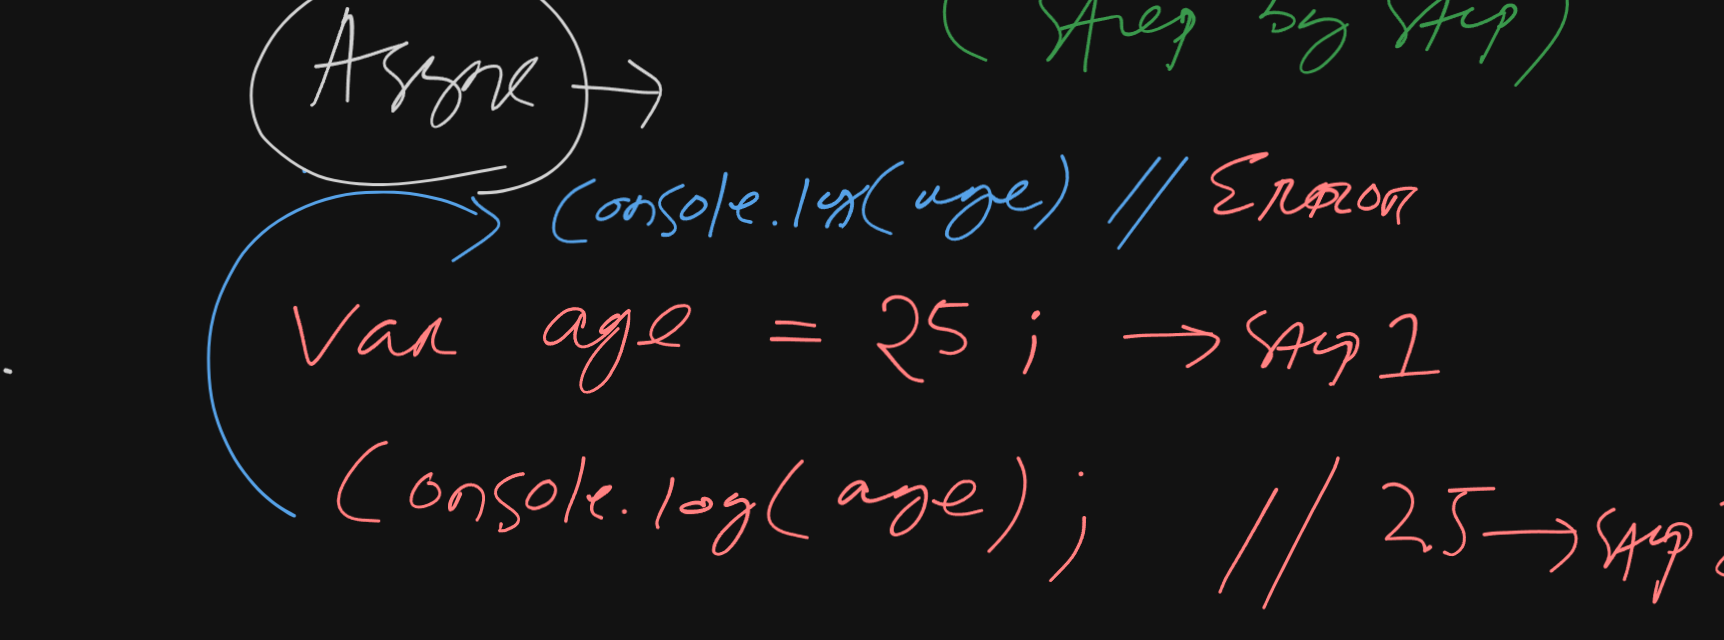 (Step by step)
Async →
console.log(age) // Error
var age = 25; → step 1
console.log(age); // 25 → step